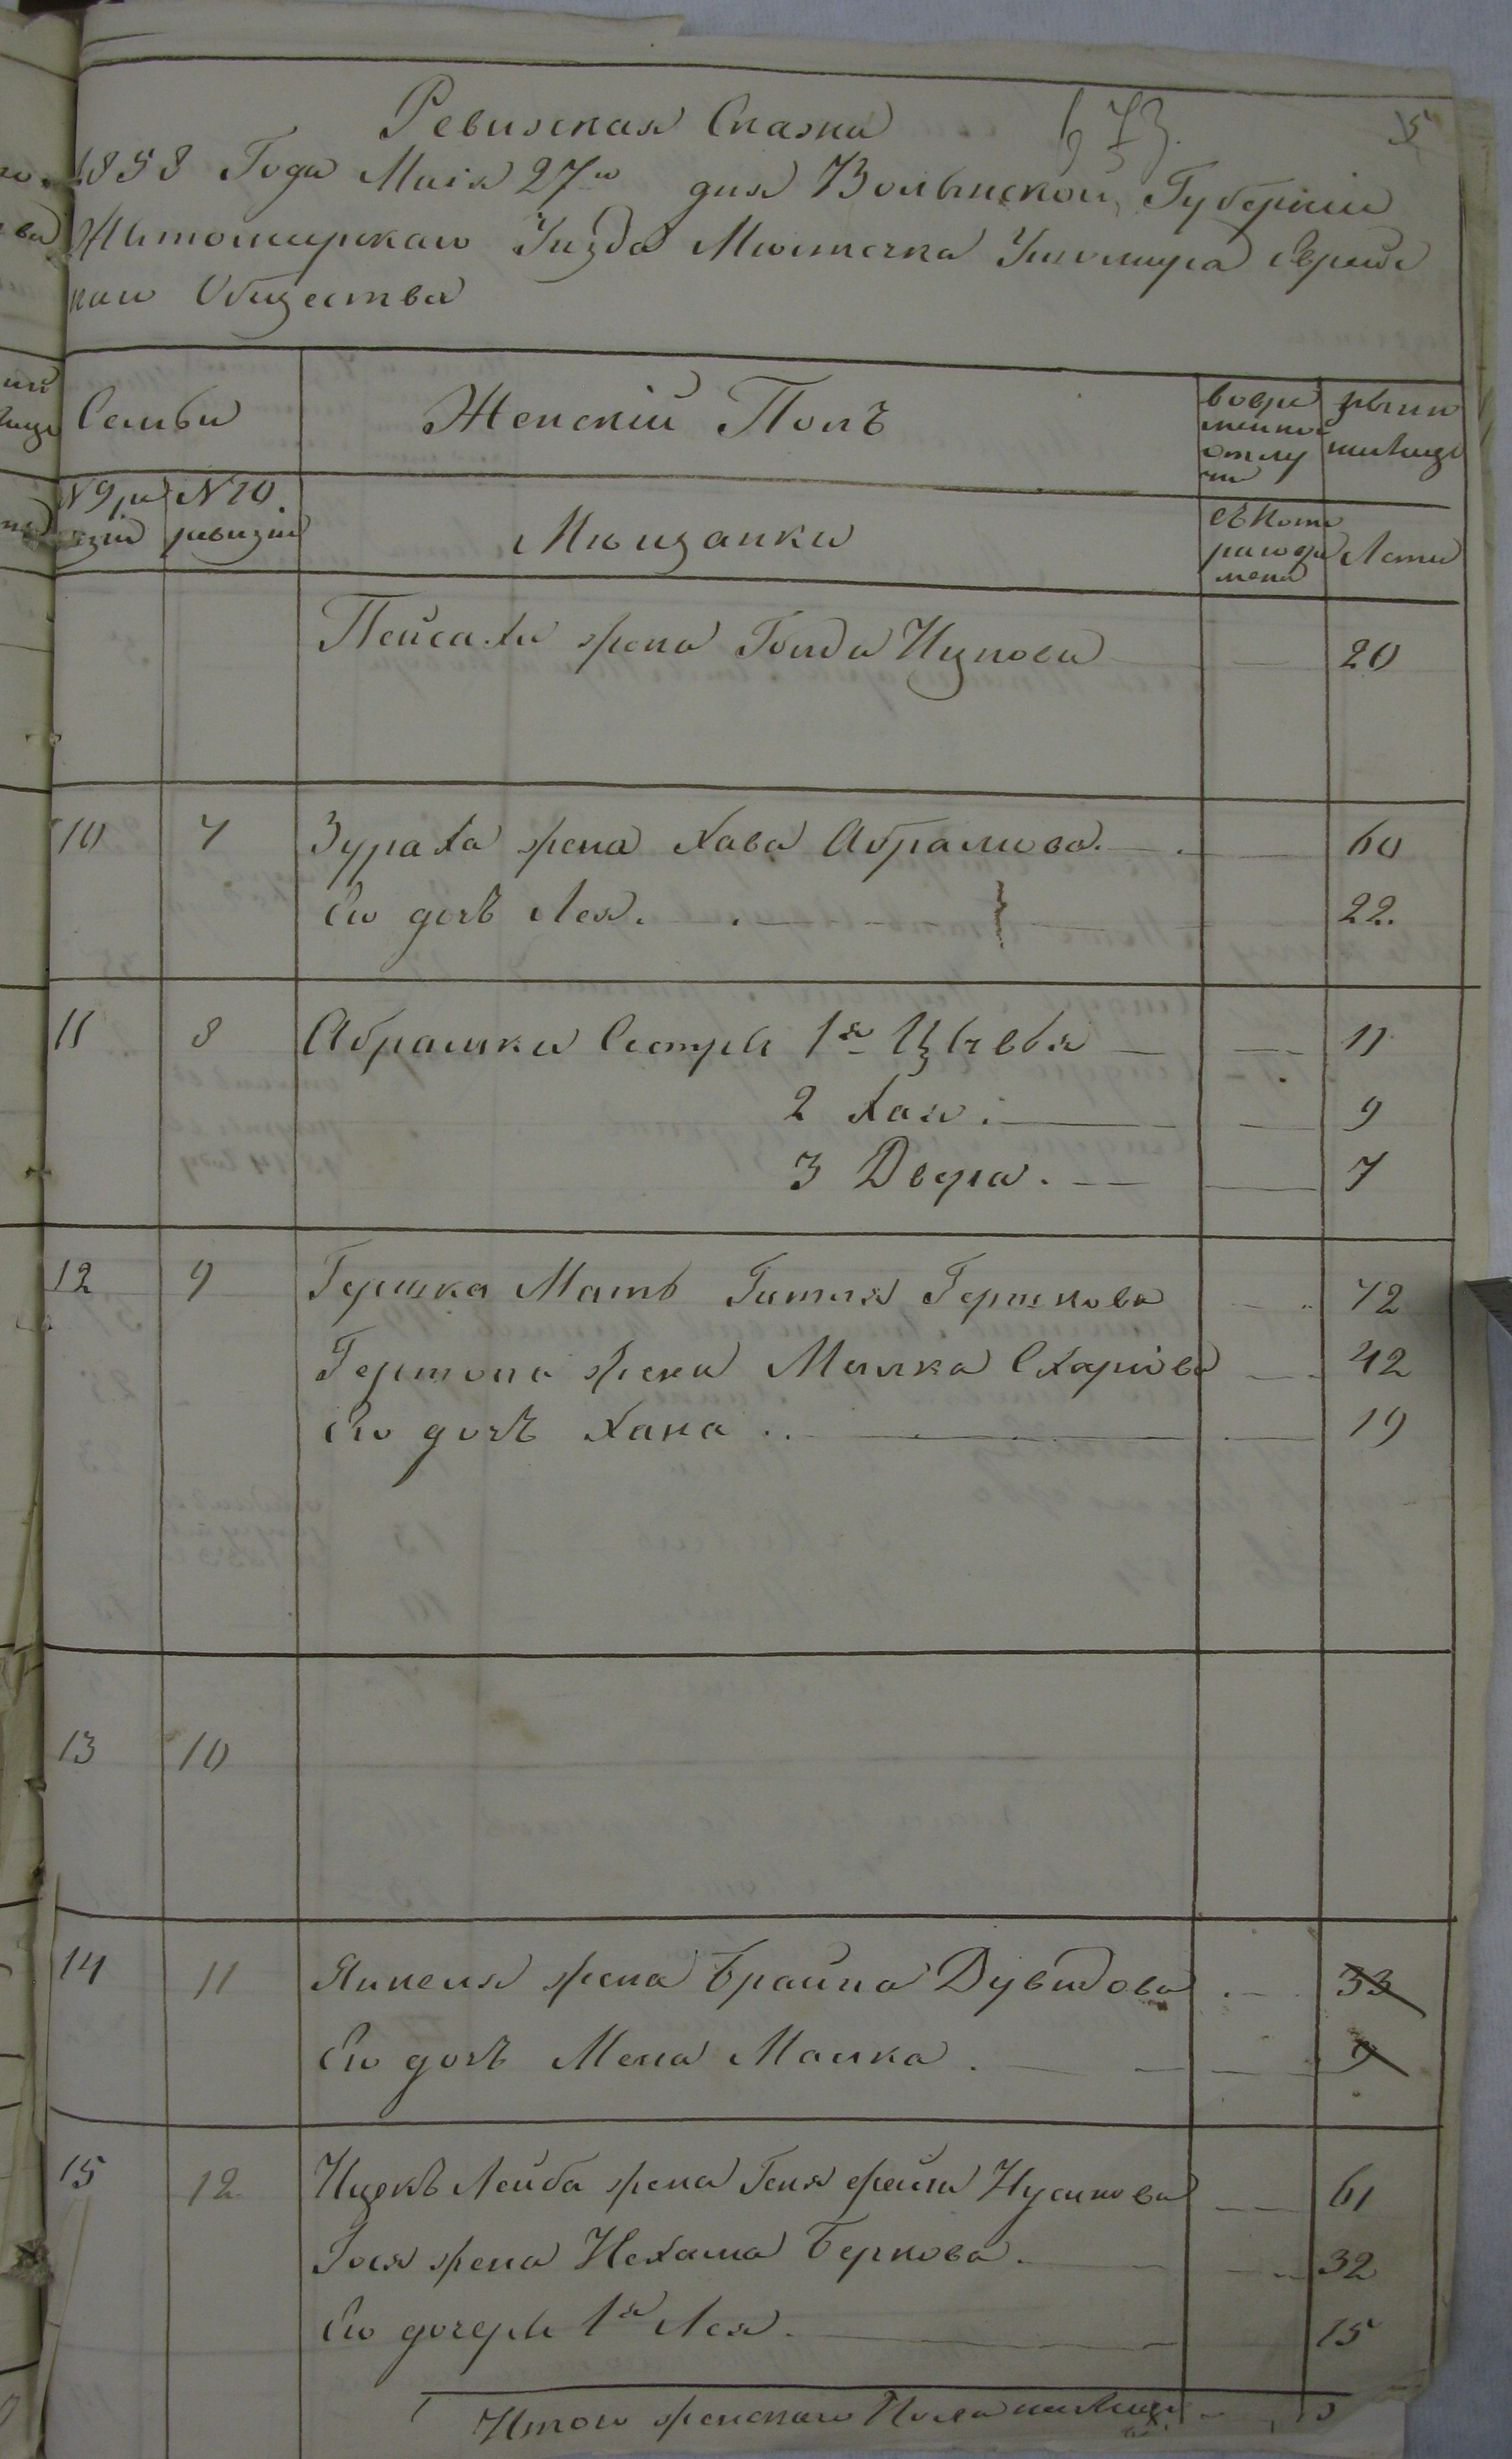 Ревизская Сказка 673. 5
1858 Года Маія 27го дня Волынской Губерніи
Житомирскаго Уизда Мистечка Ушомира Еврейс
каго Общества
Семьи Женскій Полъ вовре меннои отлу чки налицо
N 9 ре визіи N 10 ревизіи Мищанки съ кото раго вре мени Лета
Пейсаха жена Голда Ицкова 20
10 7 Зураха жена Хава Абрамова. 60
Его дочъ Лея. 22.
11 8 Абрамка Сестры 1я Цывья 11
2 Хая. 9
3 Двера. 7
12 9 Гершка Мать Гитля Гершкова 72
Гершона жена Малка Схаріова 42
Его дочъ Хана .. 19
13 10
14 11 Янкеля жена Брайна Дувидова 33
Его дочъ Мена Малка. 9
15 12 Ицекъ Лейба жена Геня Фейга Нусимова 61
Гося жена Нехама Беркова. 32
Его дочеръ 1я Лея. 15
Итого женскаго Пола налицо